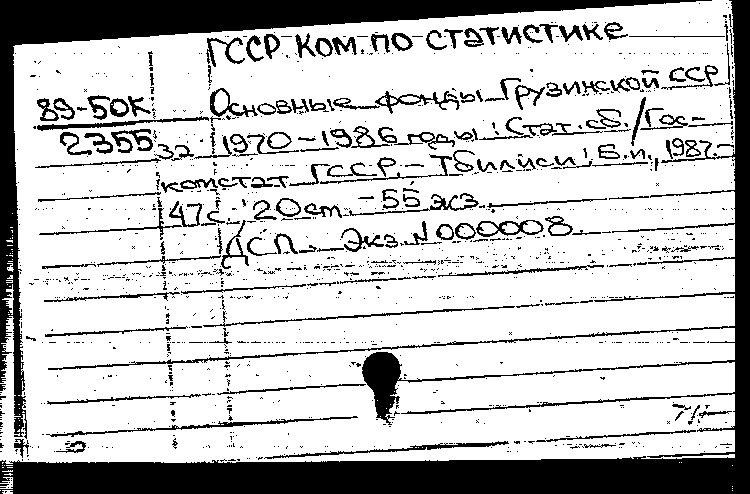 ГССР. Ком. по статистике
89-50К
2355
Основные фонды Грузинской ССР
за 1970-1986 годы: Стат. сб. / Гос-
комстат ГССР. - Тбилиси: Б.и., 1987. -
47 с.; 20 см. - 55 экз.
ДСП. Экз. N 000008.